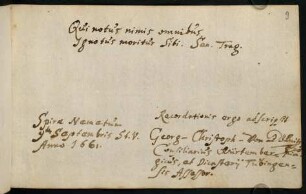 Qui notus nimis omnibus
Ignotus moritur sibi. Sen. Trag.
Spiræ Nemetum
Septembris St. V.
Anno 1661.
Recordationis ergo adscripsit
Georg Christoph Von
Consiliarius Würtenber
gicus, et Dicasterij Tübingen-
sis Assessor.
9